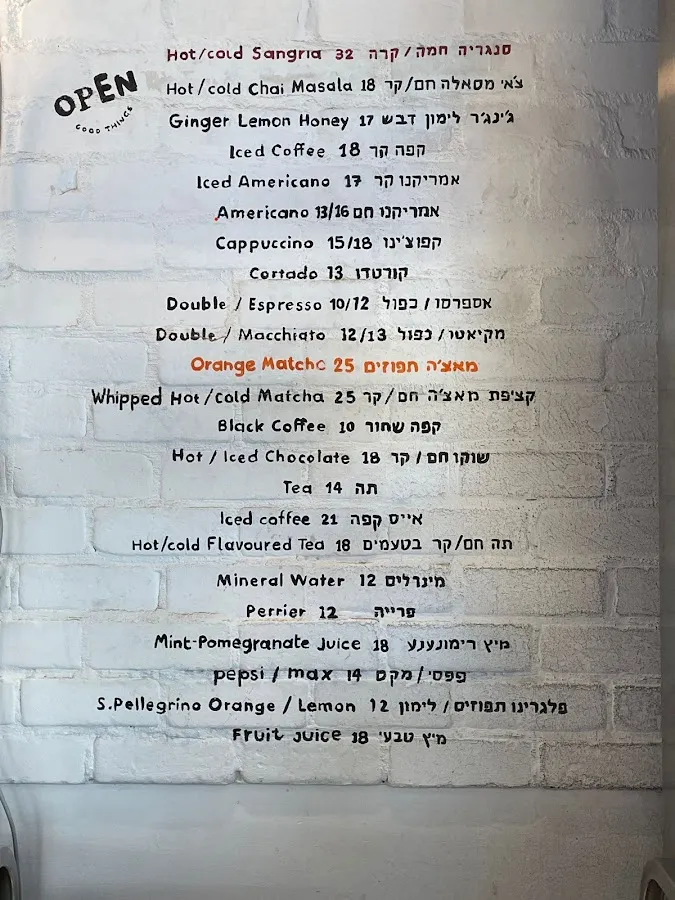 Hot/cold Sangria 32 סנגריה חמה/קרה
OPEN
GOOD THINGS
Hot/cold Chai Masala 18 צ'אי מסאלה חם/קר
Ginger Lemon Honey 17 ג'ינג'ר לימון דבש
Iced Coffee 18 קפה קר
Iced Americano 17 אמריקנו קר
Americano 13/16 אמריקנו חם
Cappuccino 15/18 קפוצ'ינו
Cortado 13 קורטדו
Double / Espresso 10/12 אספרסו / כפול
Double / Macchiato 12/13 מקיאטו / כפול
Orange Matcha 25 מאצ'ה תפוזים
Whipped Hot/Cold Matcha 25 קציפת מאצ'ה חם/קר
Black Coffee 10 קפה שחור
Hot / Iced Chocolate 18 שוקו חם / קר
Tea 14 תה
Iced coffee 21 אייס קפה
Hot/cold Flavoured Tea 18 תה חם/קר בטעמים
Mineral Water 12 מינרלים
Perrier 12 פרייה
Mint-Pomegranate Juice 18 מיץ רימונענע
pepsi / max 14 פפסי/מקס
S.Pellegrino Orange / Lemon 12 פלגרינו תפוזים / לימון
Fruit Juice 18 מיץ טבעי